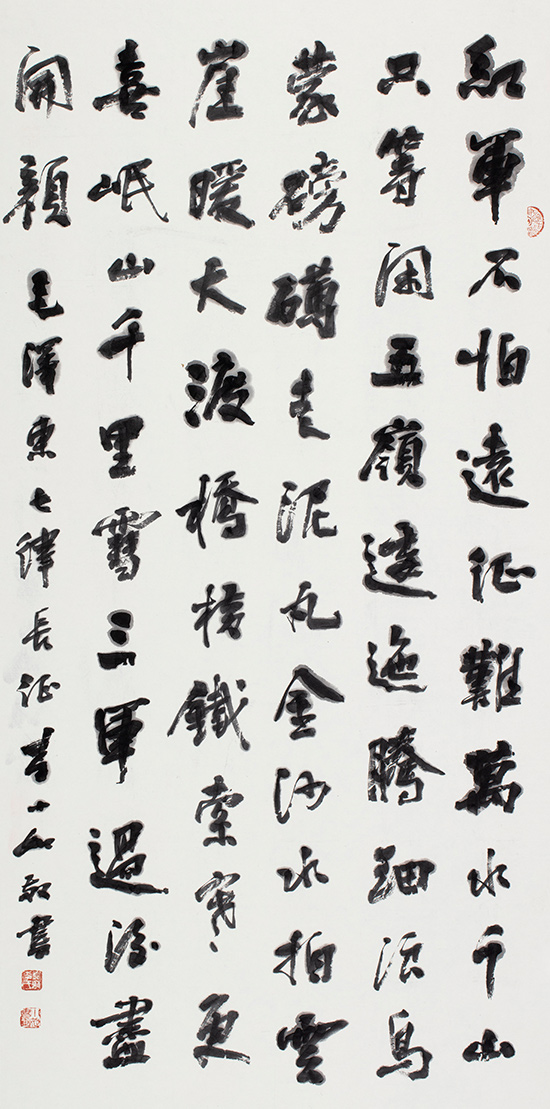 紅軍不怕遠征難萬水千山
只等閑五嶺逶迤騰細浪烏
蒙磅礴走泥丸金沙水拍雲
崖暖大渡橋横鐵索寒更
喜岷山千里雪三軍過後盡
開顏 毛澤東七律長征 書